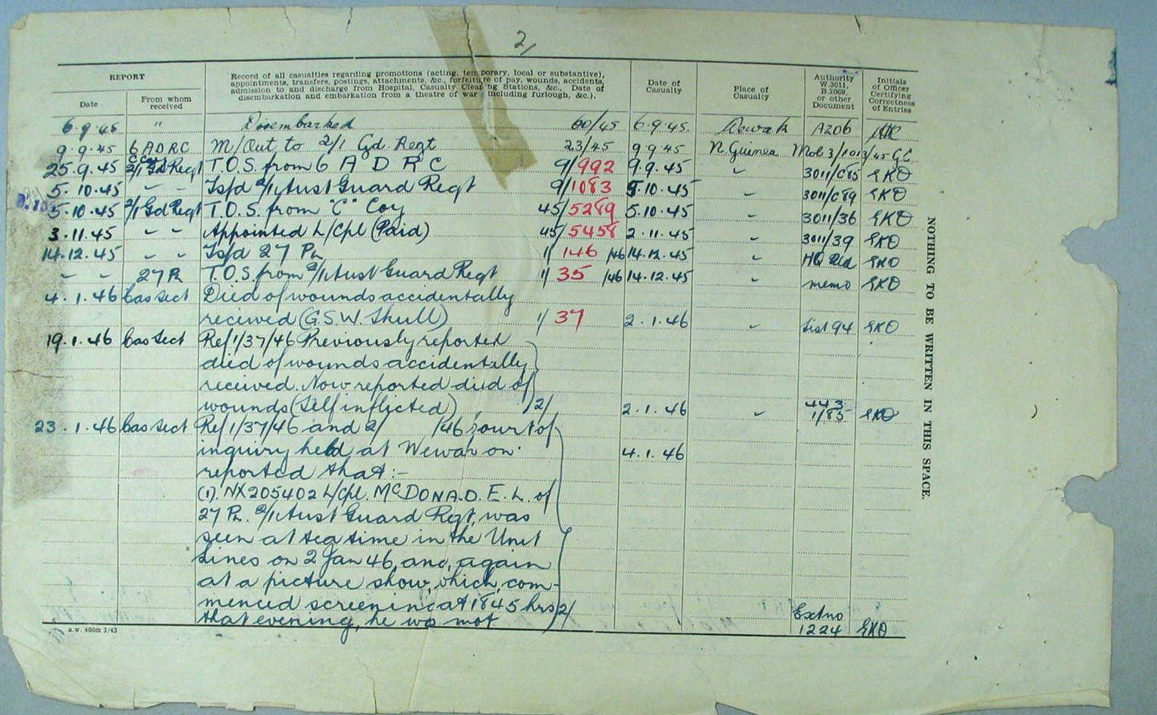 2/
REPORT
Date
From whom received
Record of all casualties regarding promotions (acting, temporary, local or substantive), appointments, transfers, postings, attachments, &c., forfeiture of pay, wounds, accidents, admission to and discharge from Hospital, Casualty Clearing Stations, &c., Date of disembarkation and embarkation from a theatre of war including furlough, &c.).
Date of Casualty
Place of Casualty
Authority W.3011, B.2069, or other Document
Initials of Officer Certifying Correctness of Entries
6.9.45 " Disembarked 60/45 6.9.45. A206
9.9.45 6 ADRC M/Out to 2/1 Gd Regt 23/45 9.9.45 N. Guinea
25.9.45 2/1 Gd Regt T.O.S. from 6 A D R C 9/992 9.9.45 " 3011/C85 EKO
5.10.45 - - Tsfd 2/1 Aust Guard Regt 9/1083 5.10.45 " 3011/C89 EKO
5.10.45 2/1 Gd Regt T.O.S. from "C" Coy 45/5289 5.10.45 " 3011/36 EKO
3.11.45 - - Appointed L/Cpl (Paid) 45/5458 2.11.45 " 3011/39 EKO
14.12.45 - - Tsfd 27 Pl 1/146/46 14.12.45 " EKO
- - 27 Pl T.O.S. from 2/1 Aust Guard Regt 1/35/46 14.12.45 " memo EKO
4.1.46 Cas Sect Died of wounds accidentally
received (G.S.W. Skull) 1/37 2.1.46 " List 94 EKO
19.1.46 Cas Sect Ref 1/37/46 Previously reported
died of wounds accidentally
received. Now reported died of
wounds (Self inflicted) /2/ 2.1.46 " 443 1/85 EKO
23.1.46 Cas Sect Ref 1/37/46 and 2/ /46, court of
inquiry held at Wewak on 4.1.46
reported that:-
(1). NX205402 L/Cpl. McDONAD. E. L. of
27 Pl. 2/1 Aust Guard Regt, was
seen at tea time in the Unit
Lines on 2 Jan 46, and, again
at a picture show, which, com-
menced screening at 1845 hrs 2/
that evening, he was not Ext no 1224 EKO
a.w. 400m 3/43
NOTHING TO BE WRITTEN IN THIS SPACE.